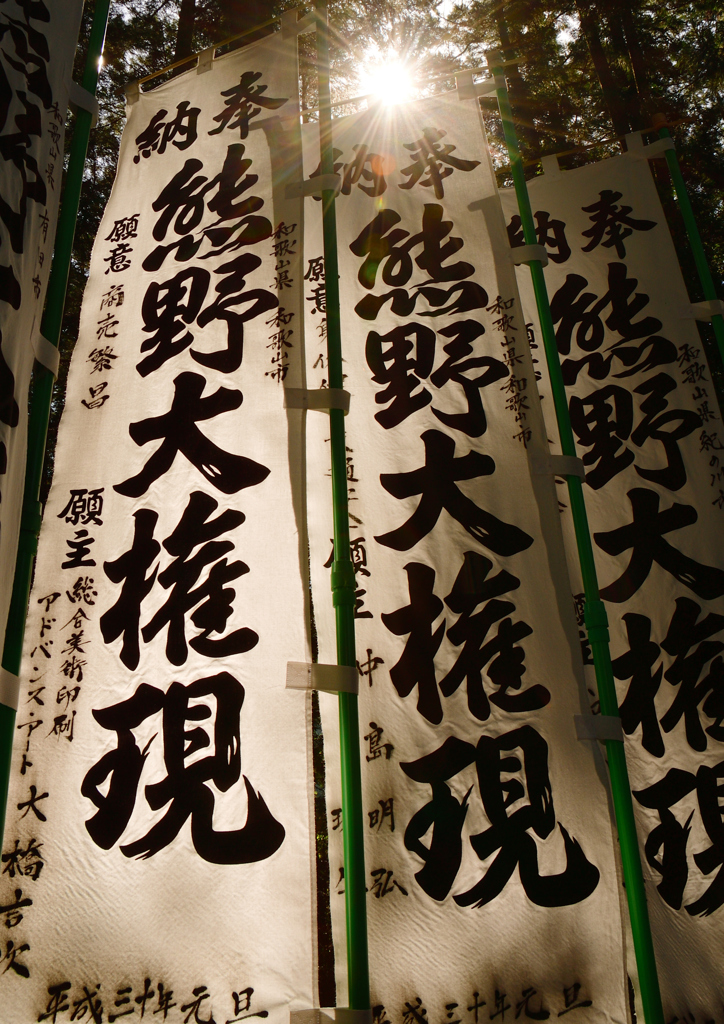 奉納
熊野大権現
和歌山県和歌山市
願意 商売繁昌
願主
総合美術印刷
アドバンスアート 大橋吉次
平成三十年元旦
奉納
熊野大権現
和歌山県和歌山市
願意
願主 仲島明弘
平成三十年元旦
奉納
熊野大権現
和歌山県紀の川市
和歌山県 有田市